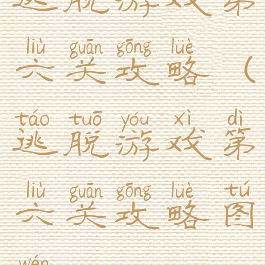 逃脱游戏第
liù guān gōng lüè
六关攻略（
táo tuō yóu xì dì
逃脱游戏第
liù guān gōng lüè tú
六关攻略图
wén